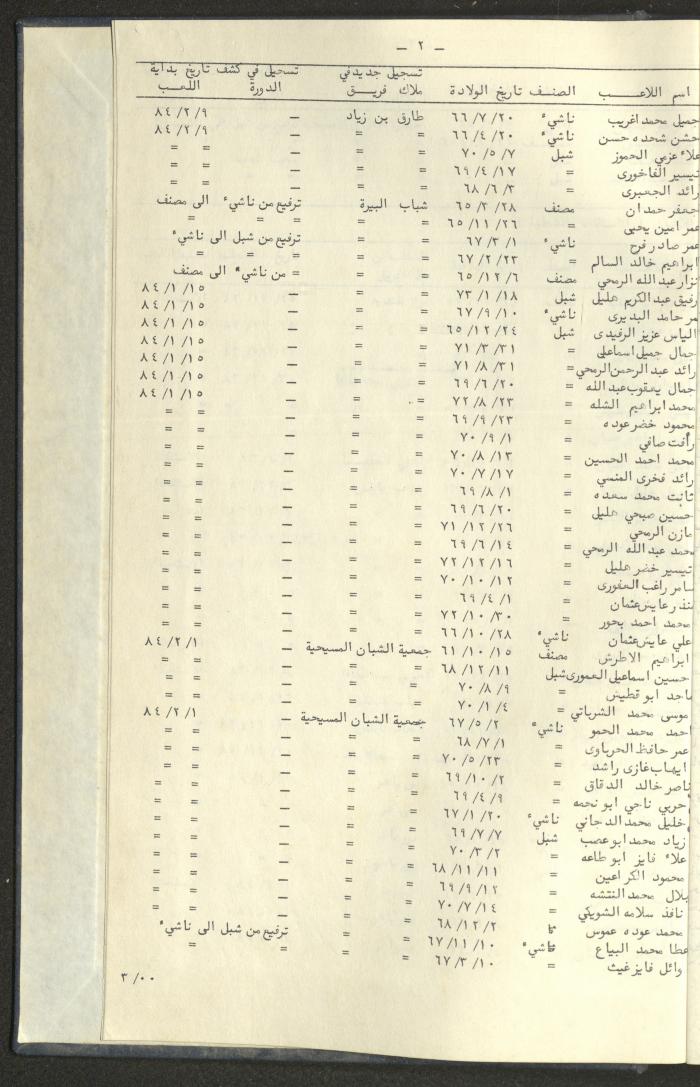 — ٢ —
اسم اللاعب الصنف تاريخ الولادة تسجيل جديد في ملاك فريق تسجيل في كشف الدورة تاريخ بداية اللعب
جميل محمد اغريب ناشيء ٦٦/٧/٢٠ طارق بن زياد — ٨٤/٢/٩
حسن شحده حسن ناشيء ٦٦/٤/٢٠ = = — ٨٤/٢/٩
علاء عزمي الحموز شبل ٧٠/٥/٧ = = — = =
تيسير الفاخورى = ٦٩/٤/١٧ = = — = =
رائد الجعبرى = ٦٨/٦/٣ = = — = =
جعفر حمدان مصنف ٦٥/٢/٢٨ شباب البيرة ترفيع من ناشيء الى مصنف
عمر امين يحيى = ٦٥/١١/٢٦ = = = = =
عمر صادر فرح ناشيء ٦٧/٣/١ = = ترفيع من شبل الى ناشيء
ابراهيم خالد السالم = ٦٧/٢/٢٣ = = = = =
نزار عبد الله الرمحي مصنف ٦٥/١٢/٦ = = = من ناشيء الى مصنف
رفيق عبد الكريم هليل شبل ٧٣/١/١٨ = = — ٨٤/١/١٥
عمر حامد البديرى ناشيء ٦٧/٩/١٠ = = — ٨٤/١/١٥
الياس عزيز الرفيدى شبل ٦٥/١٢/٢٤ = = — ٨٤/١/١٥
جمال جميل اسماعيل = ٧١/٣/٣١ = = — ٨٤/١/١٥
رائد عبد الرحمن الرمحي = ٧١/٨/٣١ = = — ٨٤/١/١٥
جمال يعقوب عبد الله = ٦٩/٦/٢٠ = = — ٨٤/١/١٥
محمد ابراهيم الشله = ٧٢/٨/٢٣ = = — ٨٤/١/١٥
محمود خضر عوده = ٦٩/٩/٢٣ = = — = =
رأفت صافي = ٧٠/٩/١ = = — = =
محمد احمد الحسين = ٧٠/٨/١٣ = = — = =
رائد فخرى المنسي = ٧٠/٧/١٧ = = — = =
ثابت محمد سعده = ٦٩/٨/١ = = — = =
حسين صبحي هليل = ٦٩/٦/٢٠ = = — = =
مازن الرمحي = ٧١/١٢/٢٦ = = — = =
محمد عبد الله الرمحي = ٦٩/٦/١٤ = = — = =
تيسير خضر هليل = ٧٢/١٢/١٦ = = — = =
سامر راغب العفورى = ٧٠/١٠/١٢ = = — = =
منذر عايش عثمان = ٦٩/٤/١ = = — = =
محمد احمد بحور = ٧٢/١٠/٣٠ = = — = =
علي عايش عثمان ناشيء ٦٦/١٠/٢٨ = = — = =
ابراهيم الاطرش مصنف ٦١/١٠/١٥ جمعية الشبان المسيحية — ٨٤/٢/١
حسين اسماعيل العمورى شبل ٦٨/١٢/١١ = = — = =
ماجد ابو قطيش = ٧٠/٨/٩ = = — = =
موسى محمد الشرباتي = ٧٠/١/٤ = = — = =
احمد محمد الحمو ناشيء ٦٧/٥/٢ جمعية الشبان المسيحية — ٨٤/٢/١
عمر حافظ الحرباوى = ٦٨/٧/١ = = — = =
ايهاب غازى راشد = ٧٠/٥/٢٣ = = — = =
ناصر خالد الدقاق = ٦٩/١٠/٢ = = — = =
حربي ناجي ابو نجمه = ٦٩/٤/٩ = = — = =
خليل محمد الدجاني ناشيء ٦٧/١/٢٠ = = — = =
زياد محمد ابو عصب شبل ٦٩/٧/٧ = = — = =
علاء فايز ابو طاعه = ٧٠/٣/٢ = = — = =
محمود الكراعين = ٦٨/١١/١١ = = — = =
بلال محمد النتشه = ٦٩/٩/١٢ = = — = =
نافذ سلامه الشويكي = ٧٠/٧/١٤ = = — = =
محمد عوده عموس = ٦٨/١٢/٢ = = — = =
عطا محمد البياع ناشيء ٦٧/١١/١٠ = = ترفيع من شبل الى ناشيء
وائل فايز غيث = ٦٧/٣/١٠ = = = =
٣/٠٠